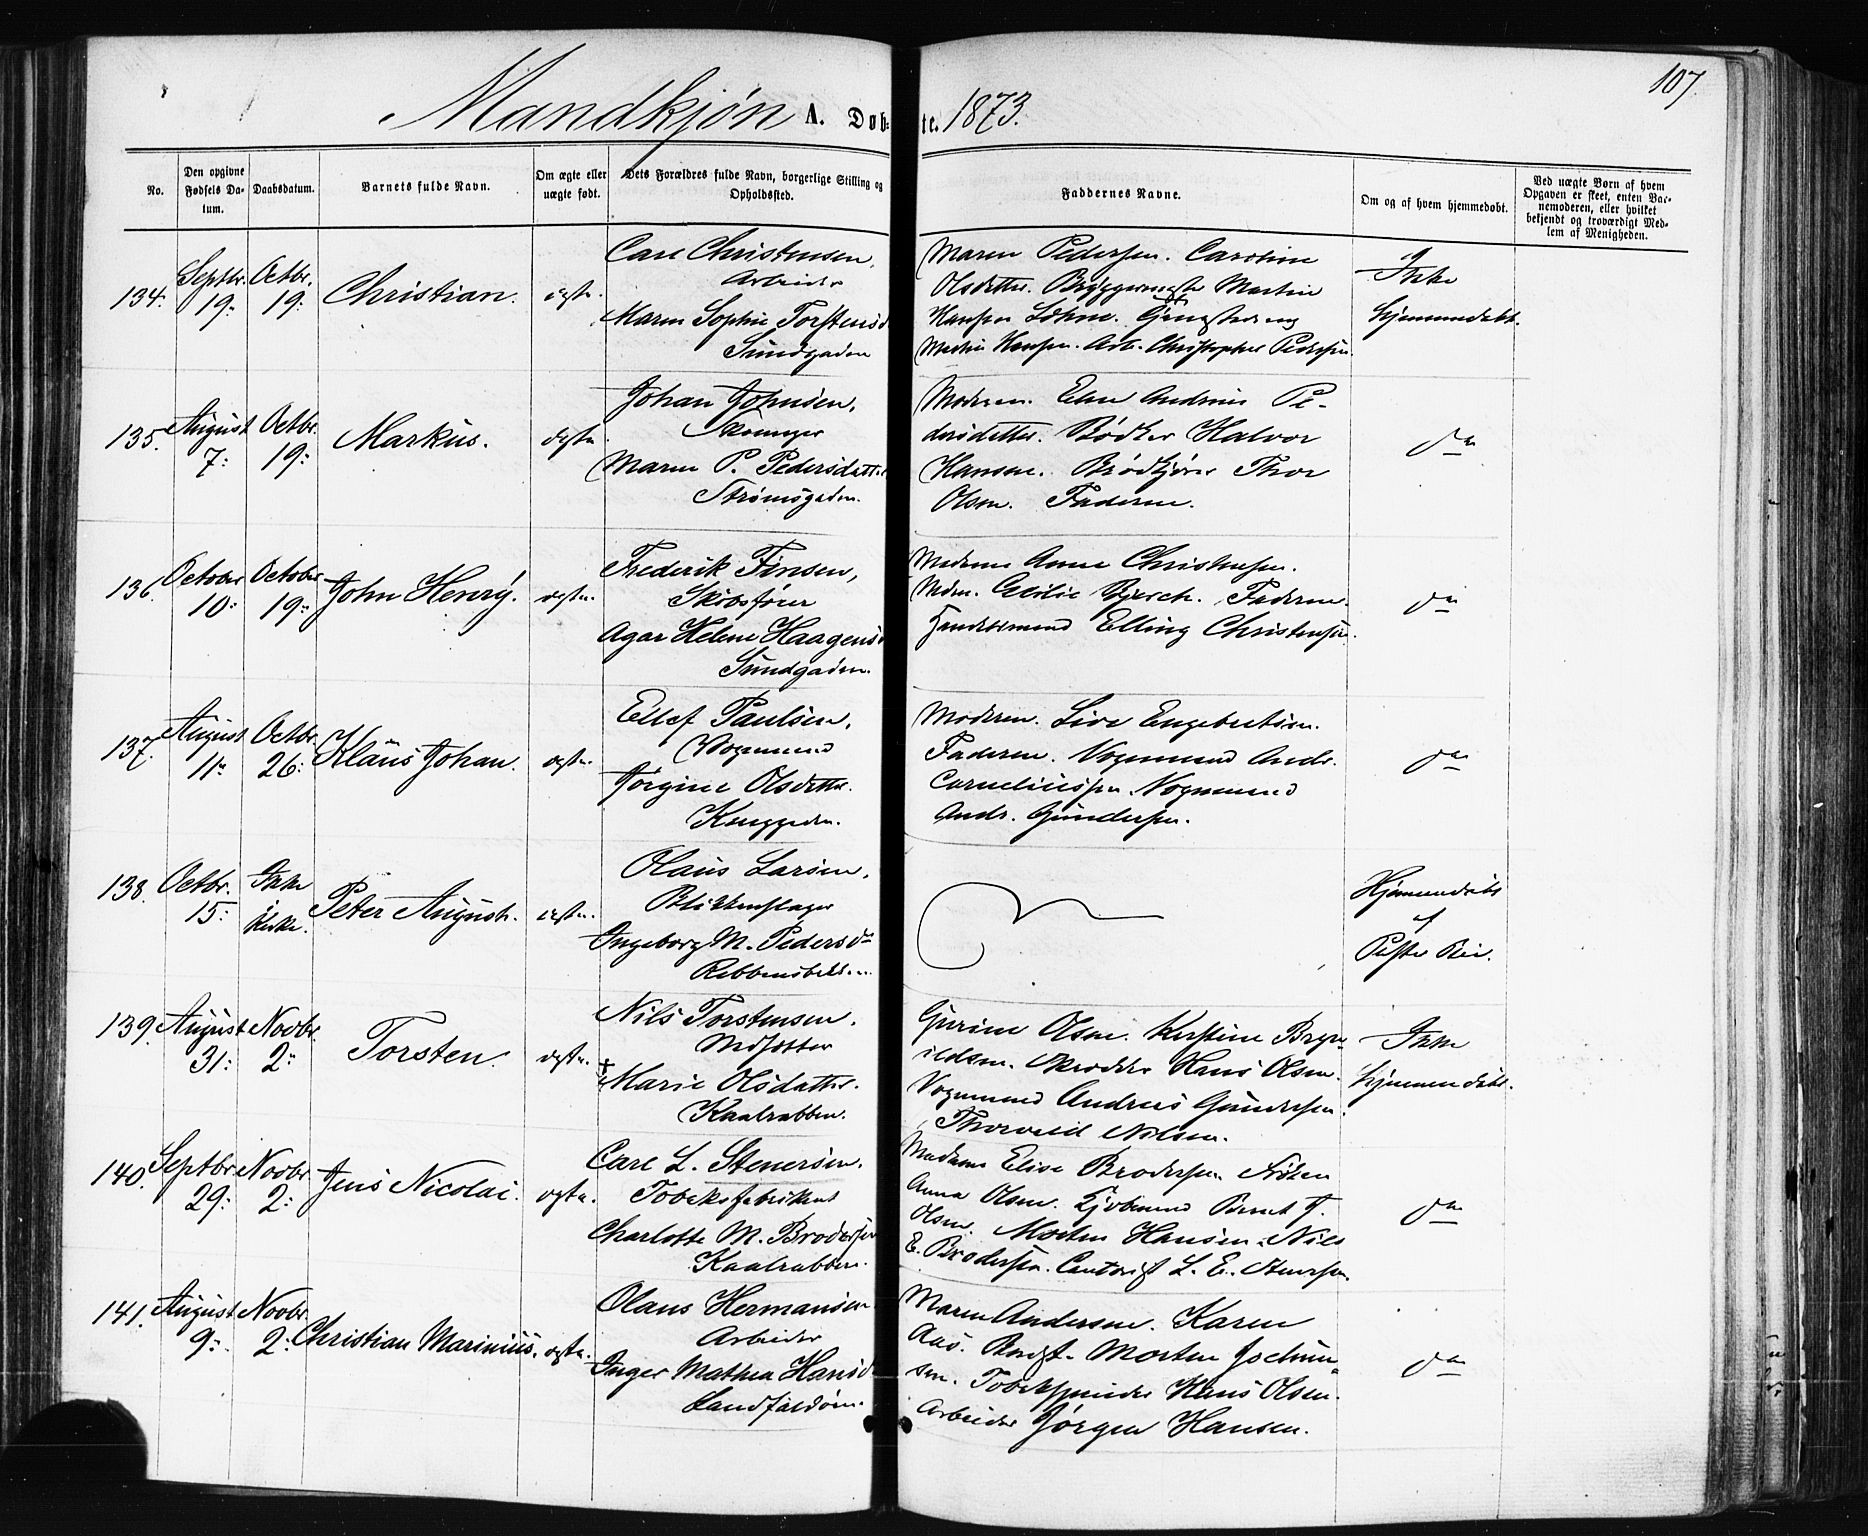 107.
Mandkjøn A. Døbte. 1873.
No.
Den opgivne Fødsels Datum.
Daabsdatum.
Barnets fulde Navn.
Om ægte eller uægte født.
Dets Forældres fulde Navn, borgerlige Stilling og Opholdssted.
Faddernes Navne.
Om og af hvem hjemmedøbt.
Ved uægte Børn af hvem Opgaven er skeet, enten Barnemoderen, eller hvilket bekjendt og troværdigt Medlem af Menigheden.
134. Septbr. 19: Octbr. 19: Christian. ægte.
Carl Christensen,
Arbeider
Maren Sophie Torstensd
Sundgaden
Maren Pedersen. Caroline
Olsdatter. Martin
Hansen
Martin Hansen. Arb. Christopher Pedersen.
Ikke
hjemmedøbt.
135. August 7: Octbr. 19: Markus. ægte.
Johan Johnsen,
Maren P. Pedersdatter
Strømsgaden.
Moderen. Elen Andrine Pe-
dersdatter. Bødker Halvor
Hansen. Brødkjører Thor
Olsen. Faderen.
do
136. October 10: October 19: John Henry. ægte.
Frederik Finsen,
Skibsfører
Agar Helene Haagensd
Sundgaden.
Madame Anne Christensen.
Mdm. Cecilie Bjerch. Faderen.
Handelsmand Elling Christensen.
do
137. August 11: Octbr. 26: Klaus Johan. ægte.
Ellef Paulsen,
Vognmand
Jørgine Olsdatter.
Moderen. Live Engebretsen.
Faderen. Vognmand Andr.
Corneliussen. Vognmand
Andr. Gundersen.
do
138. Octbr. 15: Ikke Kirke. Peter August. ægte.
Olaus Larsen,
Blikkenslager
Ingeborg M. Pedersdr
Hjemmedøbt
af
139. August 31: Novbr. 2: Torsten. ægte.
Nils Torstensen,
Nedsætter
Marie Olsdatter.
Kaalrabben.
Gurine Olsen. Kirstine
Hans Olsen.
Vognmand Andreas Gundersen.
Thorvald Nilsen.
Ikke
hjemmedøbt.
140. Septbr. 29: Novbr. 2: Jens Nicolai. ægte.
Carl L. Stenersen,
Tobaksfabrikant
Charlotte M. Brodersen
Kaalrabben.
Madame Elise Brodersen.
Anna Olsen. Bernt J.
Olsen. Morten Hansen. Nils
E. Brodersen. Contorist L. E. Stenersen.
do
141. August 9: Novbr. 2: Christian Marinius. ægte.
Olaus Hermansen
Arbeider
Inger Mathea Hansd.
Landfaldøen.
Maren Andersen. Karen
Aas. Morten Jochum-
sen. Tobakspinder Hans Olsen.
Arbeider Jørgen Hansen.
do